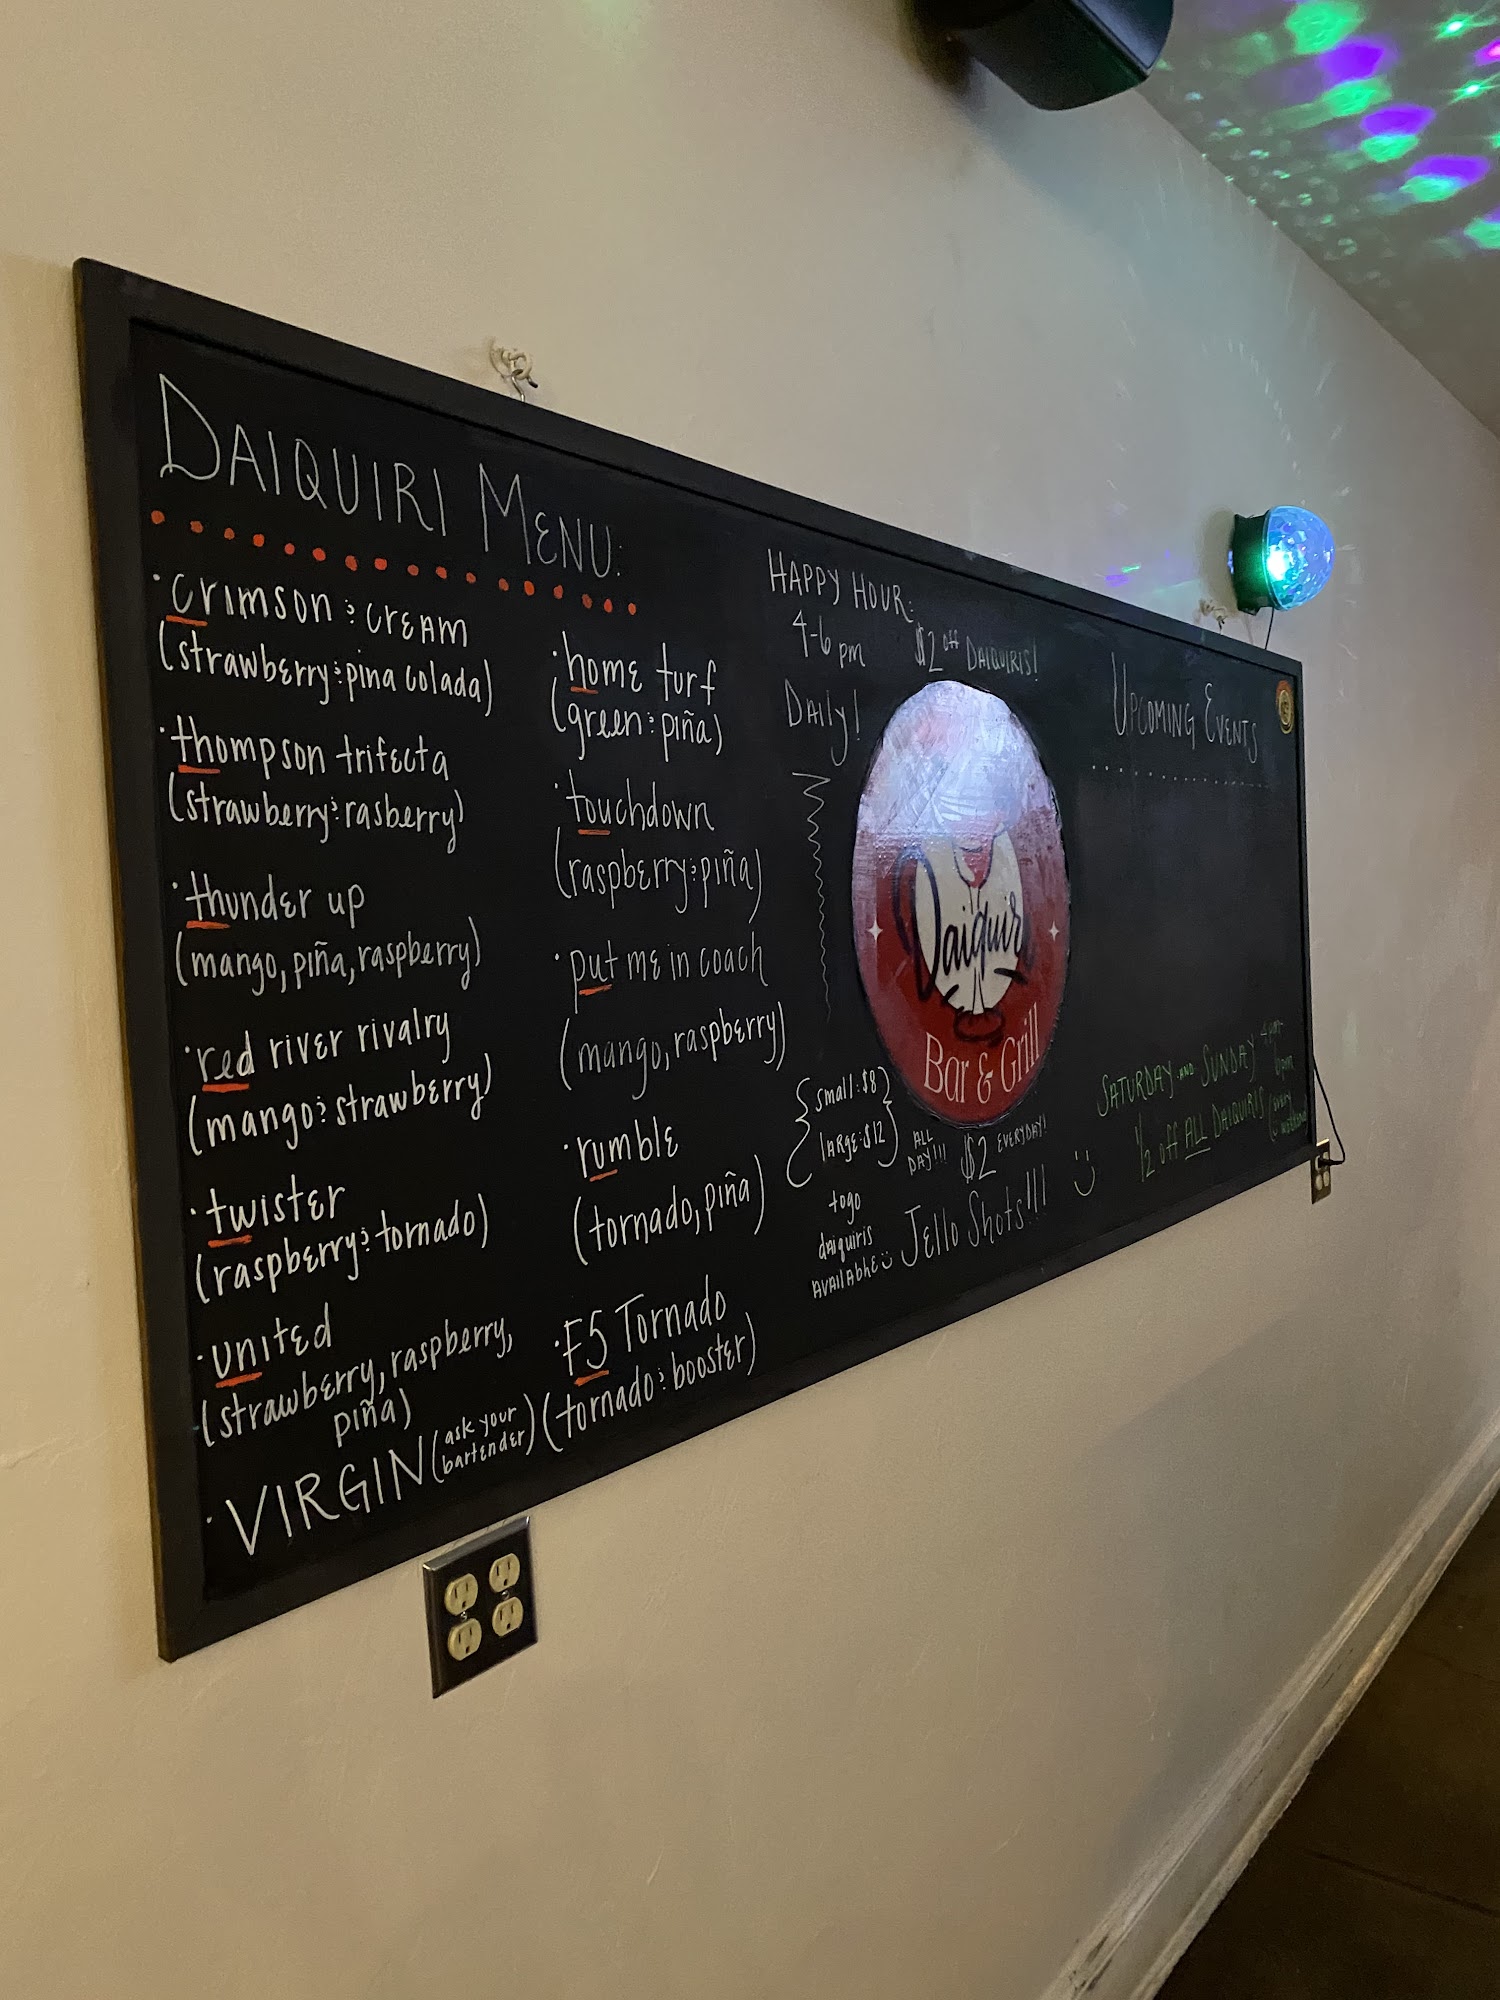 DAIQUIRI MENU:
· crimson & cream
(strawberry & pina colada)
· thompson trifecta
(strawberry & rasberry)
· thunder up
(mango, piña, raspberry)
· red river rivalry
(mango & strawberry)
· twister
(raspberry & tornado)
· united
(strawberry, raspberry,
piña)
· VIRGIN (ask your
bartender)
· home turf
(green & piña)
· touchdown
(raspberry & piña)
· put me in coach
(mango, raspberry)
· rumble
(tornado, piña)
· F5 Tornado
(tornado & booster)
HAPPY HOUR:
4-6 pm $2 off DAIQUIRIS!
Daily!
Daiquiri
Bar & Grill
small: $8
large: $12
ALL
DAY!!!
togo
daiquiris
available
$2 EVERYDAY!
Jello Shots!!!
UPCOMING EVENTS
SATURDAY AND SUNDAY
1/2 off ALL DAIQUIRIS
(every
weekend